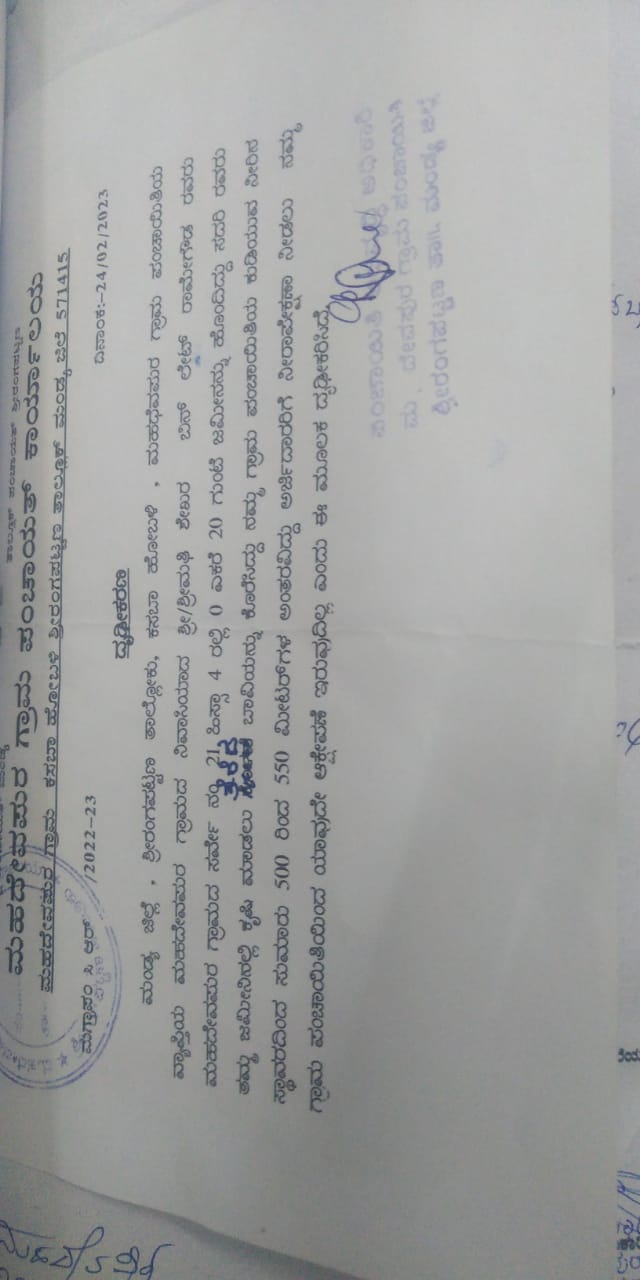 ತಾಲ್ಲೂಕ್ ಪಂಚಾಯತ್ ಶ್ರೀರಂಗಪಟ್ಟಣ
ಮಹದೇವಪುರ ಗ್ರಾಮ ಪಂಚಾಯತ್ ಕಾರ್ಯಾಲಯ
ಮಹದೇವಪುರ ಗ್ರಾಮ ಕಸಬಾ ಹೋಬಳಿ ಶ್ರೀರಂಗಪಟ್ಟಣ ತಾಲ್ಲೂಕ್ ಮಂಡ್ಯ ಜಿಲ್ಲೆ 571415
ಮಗ್ರಾಪಂ ಸಿ ಆರ್ /2022-23 ದಿನಾಂಕ:-24/02/2023
ದೃಢೀಕರಣ
ಮಂಡ್ಯ ಜಿಲ್ಲೆ , ಶ್ರೀರಂಗಪಟ್ಟಣ ತಾಲ್ಲೋಕು, ಕಸಬಾ ಹೋಬಳಿ , ಮಹದೆವಪುರ ಗ್ರಾಮ ಪಂಚಾಯಿತಿಯ
ವ್ಯಾಪ್ತಿಯ ಮಹದೇವಪುರ ಗ್ರಾಮದ ನಿವಾಸಿಯಾದ ಶ್ರೀ/ಶ್ರೀಮತಿ ಶೇಖರ ಬಿನ್ ಲೇಟ್ ರಾಮೇಗೌಡ ರವರು
ಮಹದೇವಪುರ ಗ್ರಾಮದ ಸರ್ವೇ ನಂ 21 ಹಿಸ್ಸಾ 4 ರಲ್ಲಿ 0 ಎಕರೆ 20 ಗುಂಟೆ ಜಮೀನನ್ನು ಹೊಂದಿದ್ದು ಸದರಿ ರವರು
ತಮ್ಮ ಜಮೀನಿನಲ್ಲಿ ಕೃಷಿ ಮಾಡಲು ತೆರೆದ ಬಾವಿಯನ್ನು ಕೊರೆಸಿದ್ದು ನಮ್ಮ ಗ್ರಾಮ ಪಂಚಾಯಿತಿಯ ಕುಡಿಯುವ ನೀರಿನ
ಸ್ಥಾವರದಿಂದ ಸುಮಾರು 500 ರಿಂದ 550 ಮೀಟರ್‌ಗಳ ಅಂತರವಿದ್ದು ಅರ್ಜಿದಾರರಿಗೆ ನೀರಾಪೇಕ್ಷಣಾ ನೀಡಲು ನಮ್ಮ
ಗ್ರಾಮ ಪಂಚಾಯಿತಿಯಿಂದ ಯಾವುದೇ ಆಕ್ಷೇಪಣೆ ಇರುವುದಿಲ್ಲ ಎಂದು ಈ ಮೂಲಕ ದೃಢೀಕರಿಸಿದೆ
ಪಂಚಾಯಿತಿ ಅಧಿಕಾರಿ
ಮ. ದೇವಪುರ ಗ್ರಾಮ ಪಂಚಾಯಿತಿ
ಶ್ರೀರಂಗಪಟ್ಟಣ ತಾಲ. ಮಂಡ್ಯ ಜಿಲ್ಲೆ